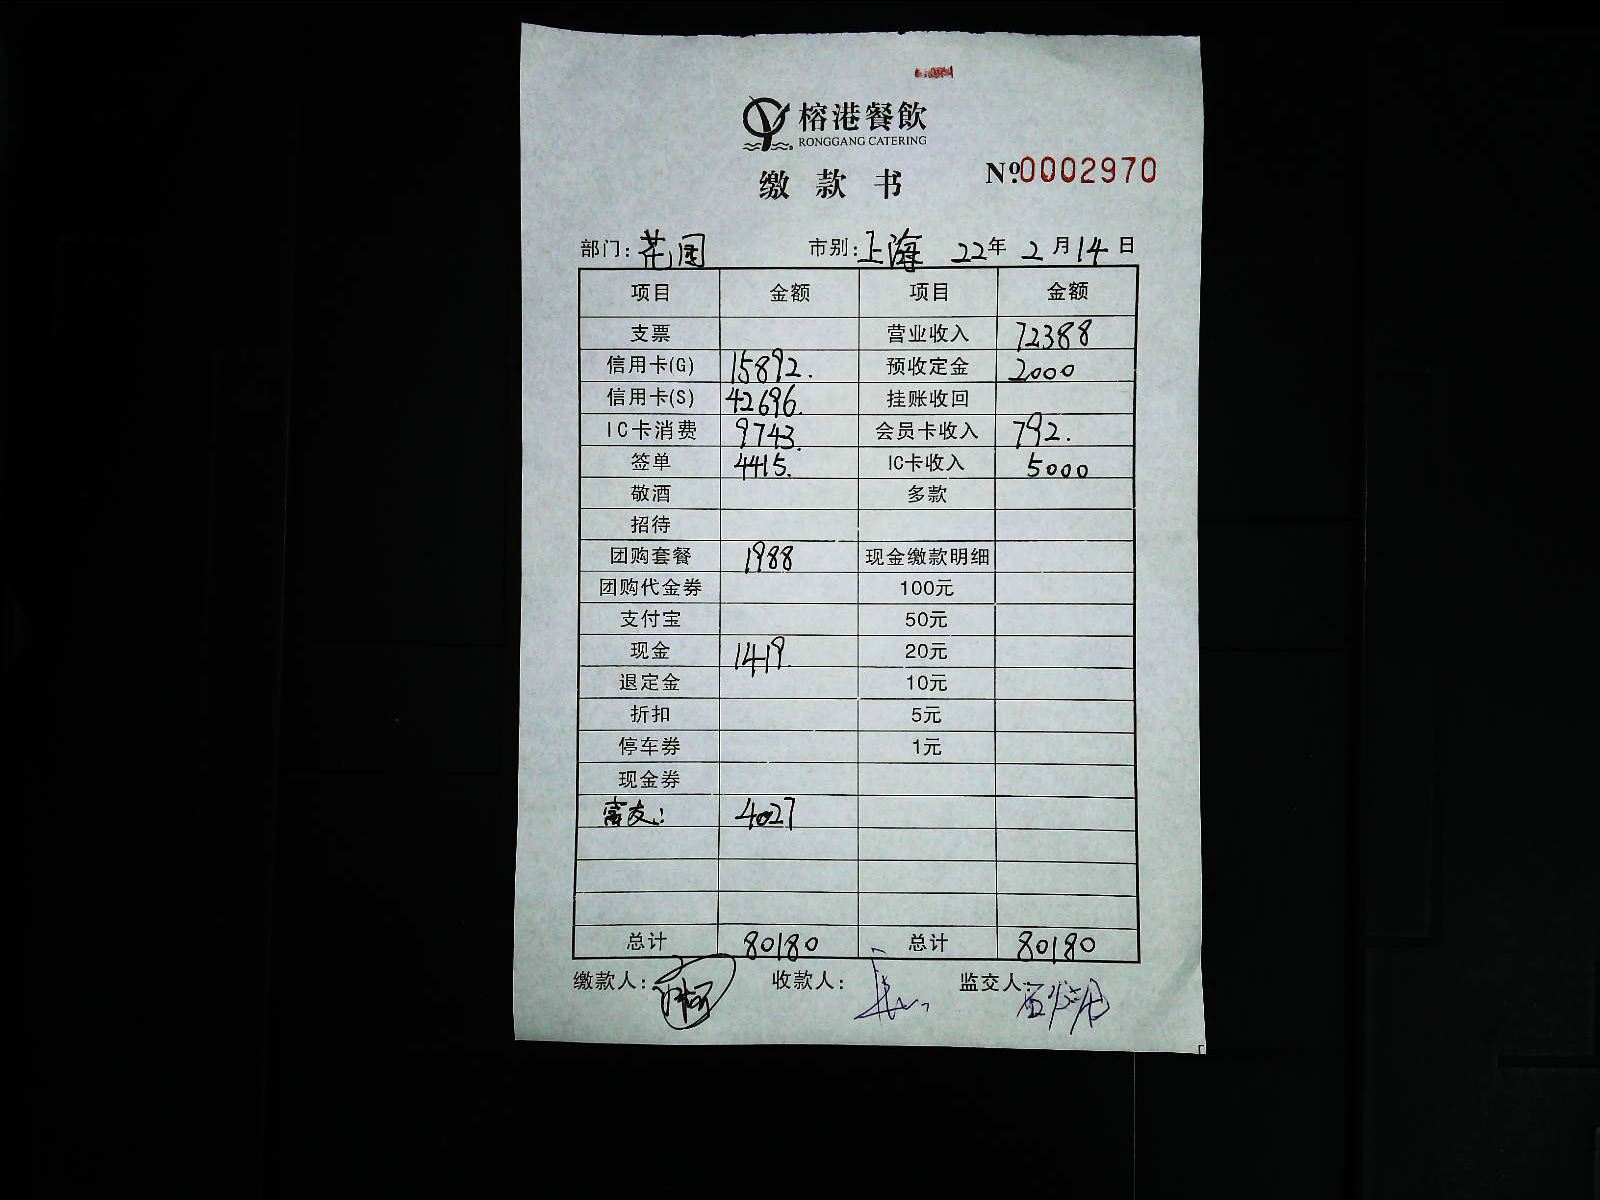 榕港餐飲
RONGGANG CATERING
缴款书
№0002970
部门：花园 市别：上海 22年2月14日
项目 金额 项目 金额
支票 营业收入 72388
信用卡(G) 15892. 预收定金 2000
信用卡(S) 42696. 挂账收回
IC卡消费 9743. 会员卡收入 792.
签单 4415. IC卡收入 5000
敬酒 多款
招待
团购套餐 1988 现金缴款明细
团购代金券 100元
支付宝 50元
现金 1419. 20元
退定金 10元
折扣 5元
停车券 1元
现金券
富友： 4027
总计 80180 总计 80180
缴款人： 收款人： 监交人：